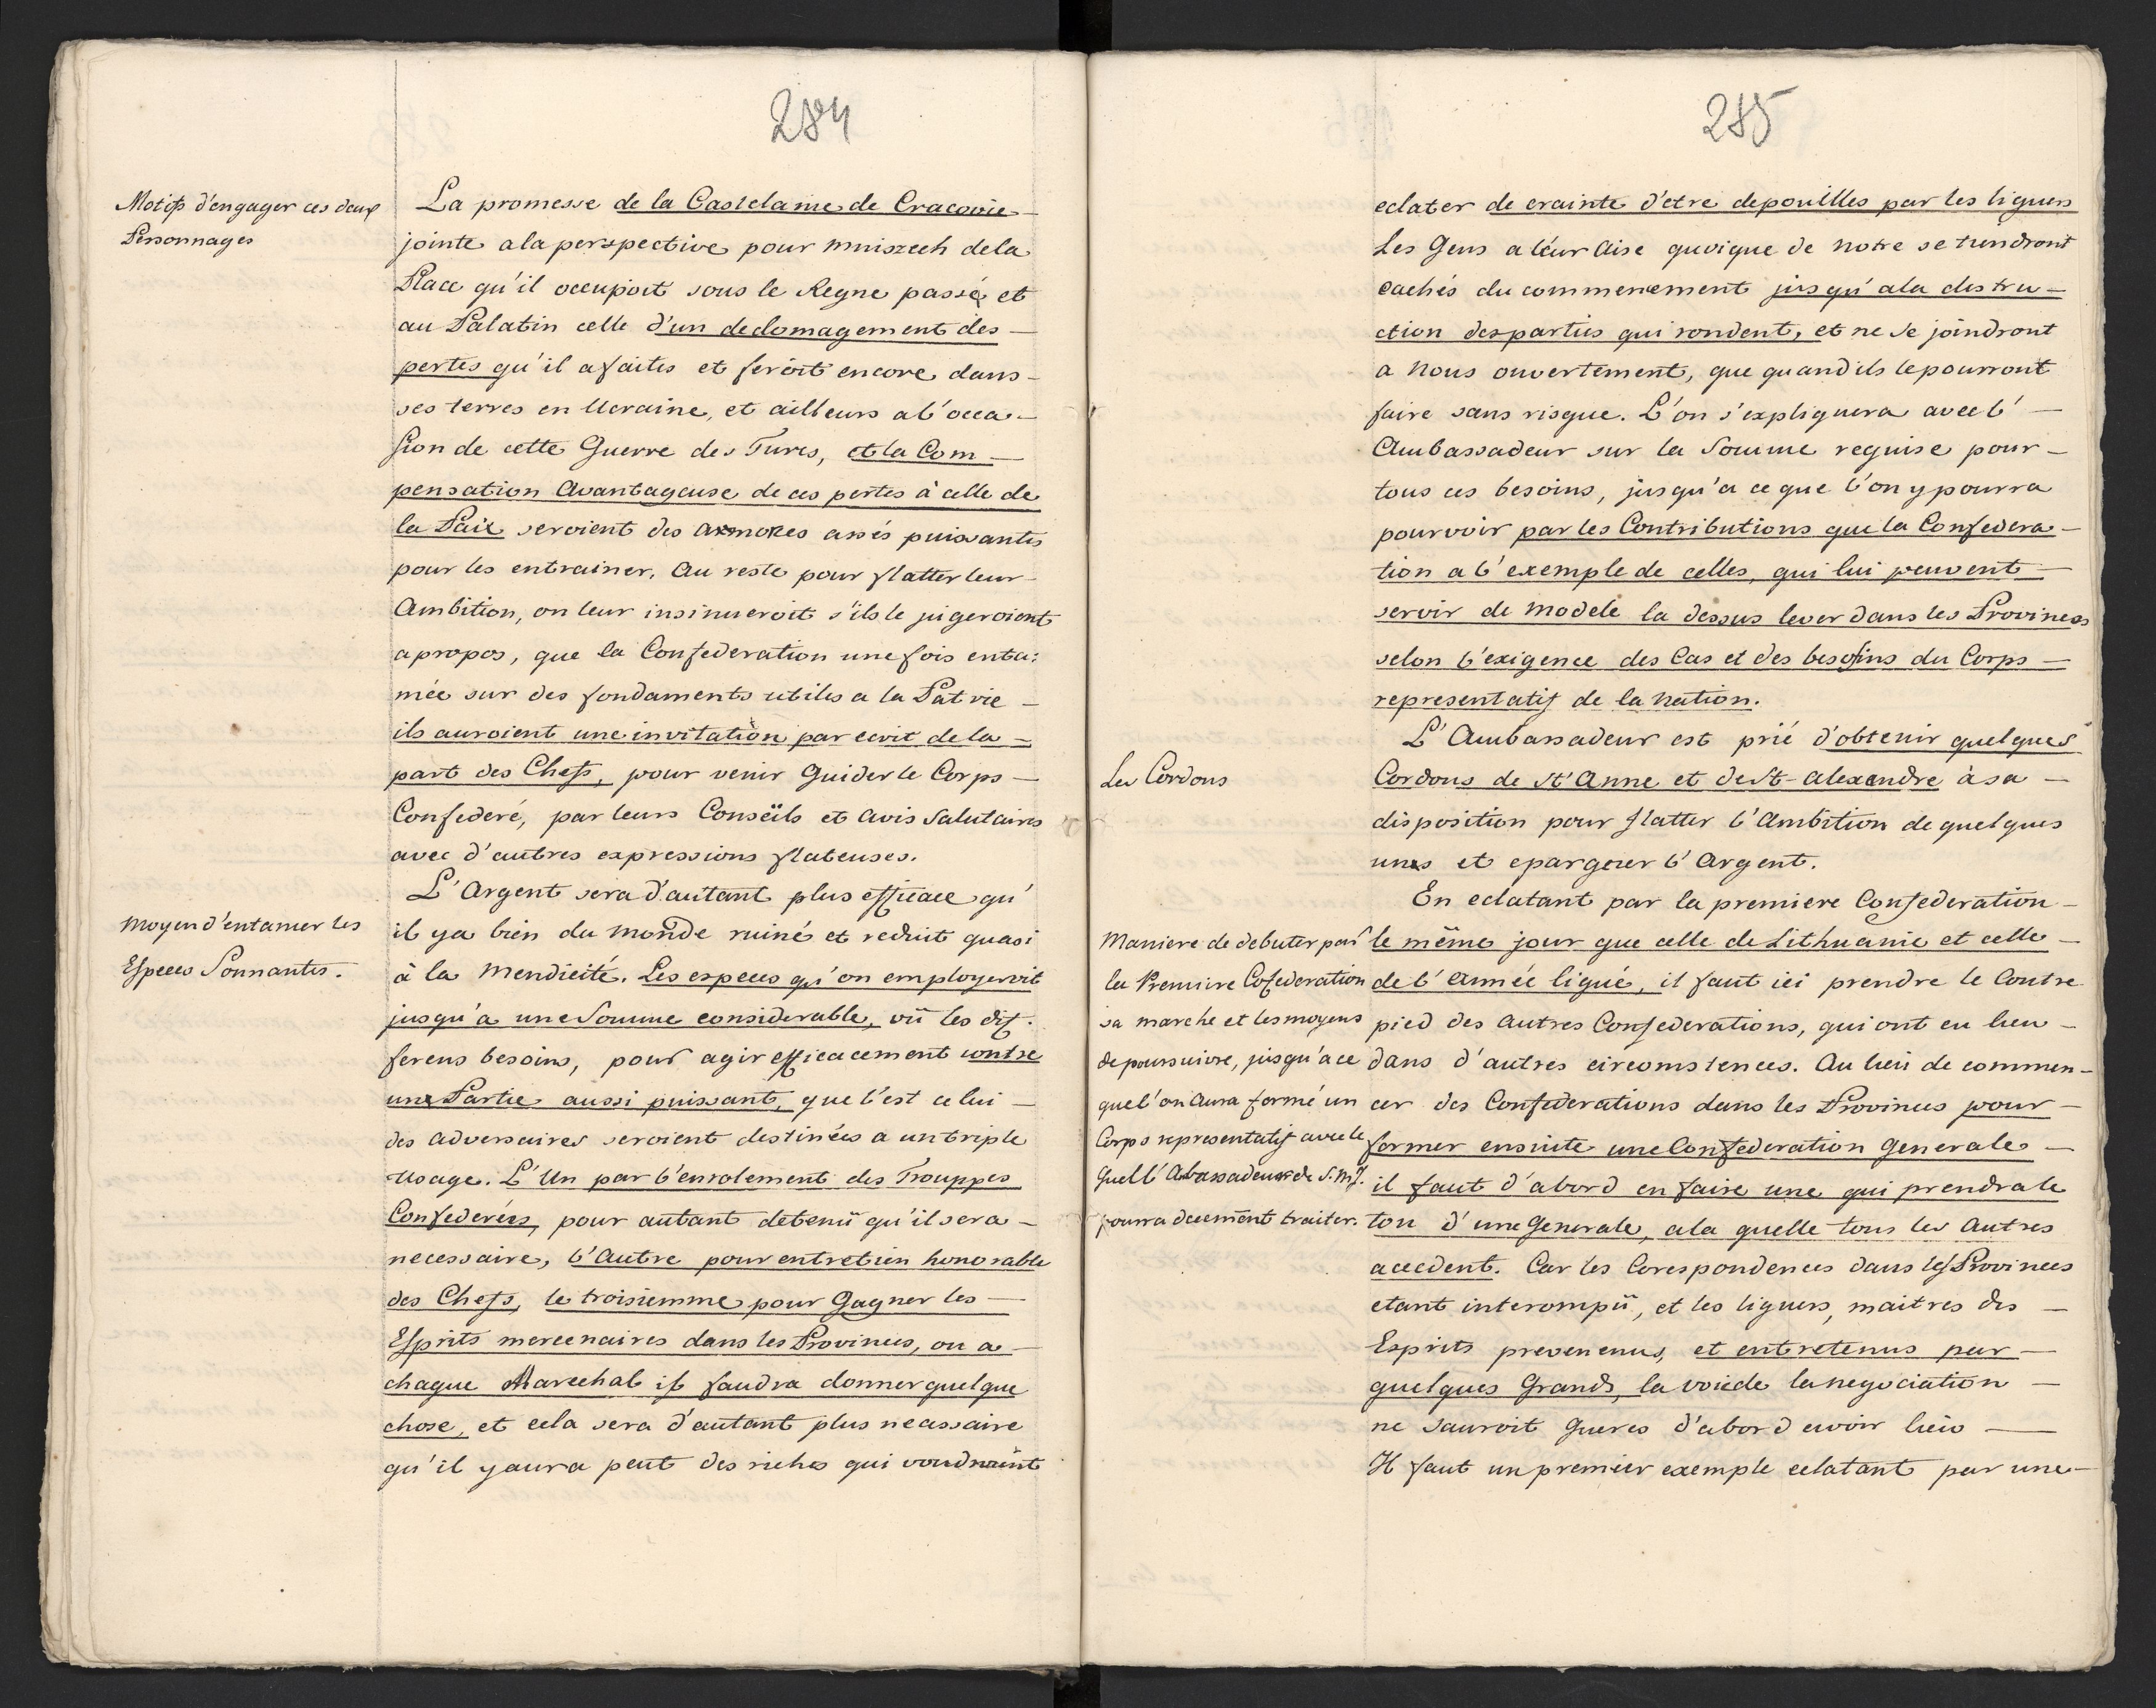 284
Motifs d'engager ces deux
Personnages
La promesse de la Castelanie de Cracovie
jointe a la perspective pour Mniszech de la
Place qu'il occupoit sous le Regne passé et
au Palatin celle d'un dedomagement des
pertes qu'il a faites et feroit encore dans
ses terres en Ucraine, et ailleurs a l'occa-
sion de cette Guerre des Turcs, et la Com-
pensation Avantageuse de ces pertes à celle de
la Paix seroient des amorces assés puissantes
pour les entrainer. Au reste pour flatter leur
Ambition, on leur insinueroit s'ils le jugeroient
apropos, que la Confederation une fois enta:
mée sur des fondaments utiles a la Patrie
ils auroient une invitation par ecrit de la
part des Chefs, pour venir Guider le Corps
Confederé, par leurs Conseils et avis Salutaires
avec d'autres expressions flateuses.
Moyen d'entamer les
Especes Sonnantes.
L'Argent sera d'autant plus efficace qu'
il ya bien du monde ruiné et reduit quasi
à la Mendicité. Les especes qu'on employeroit
jusqu'a une Somme considerable, vù les dif.
ferens besoins, pour agir efficacement contre
une Partie aussi puissant, que l'est celui
des adversaires seroient destinées a un triple
usage. L'Un par l'enrolement des Trouppes
Confederées, pour autant detemü qu'il sera
necessaire, l'Autre pour entretien honorable
des Chefs, le troisiemme pour Gagner les
Esprits mercenaires dans les Provinces, ou a
chaque Marechal il faudra donner quelque
chose, et cela sera d'autant plus necassaire
qu'il y aura peut des riches qui voudroint
285
eclater de crainte d'etre depouilles par les ligues
Les Gens a leur Aise quoique de notre se tiendront
cachés du commencement jusqu'ala destru-
ction des partis qui rondent, et ne se joindront
a Nous ouvertement, que quand ils le pourront
faire sans risque. L'on s'expliquera avec l'
Ambassadeur sur la Somme requise pour
tous ces besoins, jusqu'a ce que l'on y pourra
pourvoir par les Contributions que la Confedera-
tion a l'exemple de celles, qui lui peuvent
servir de modele la dessus lever dans les Provinces
selon l'exigence des Cas et des besoins du Corps
representatif de la Nation.
Les Cordons
L'Ambassadeur est prié d'obtenir quelques
Cordons de St' Anne et de St-Alexandre à sa
disposition pour flatter l'Ambition de quelques
unes et epargner l'Argent.
Maniere de debuter par
la Premiere Cofederation
sa marche et les moyens
de poursuivre, jusqu'a ce
que l'on Aura formé un
Corps representatif avec le
quel l'Abassadeur de S. M. J.
pourra decement traiter.
En eclatant par la premiere Confederation
le même jour que celle de Lithuanie et celle
de l'Année ligué, il faut ici prendre le Contre
pied des Autres Confederations, qui ont eu lieu
dans d'autres circomstences. Au lieu de commen-
cer des Confederations dans les Provinces pour
former ensuite une Confederation Generale
il faut d'abord en faire une qui prendra le
ton d'une Generale, ala quelle tous les Autres
accedent. Car les Corespondences dans les Provinces
etant interompü, et les ligues, maitres des
Esprits prevenenus, et entretenus par
quelques Grands, la voie de la negociation
ne sauroit Gueres d'abord avoir lieu
Il faut un premier exemple eclatant par une